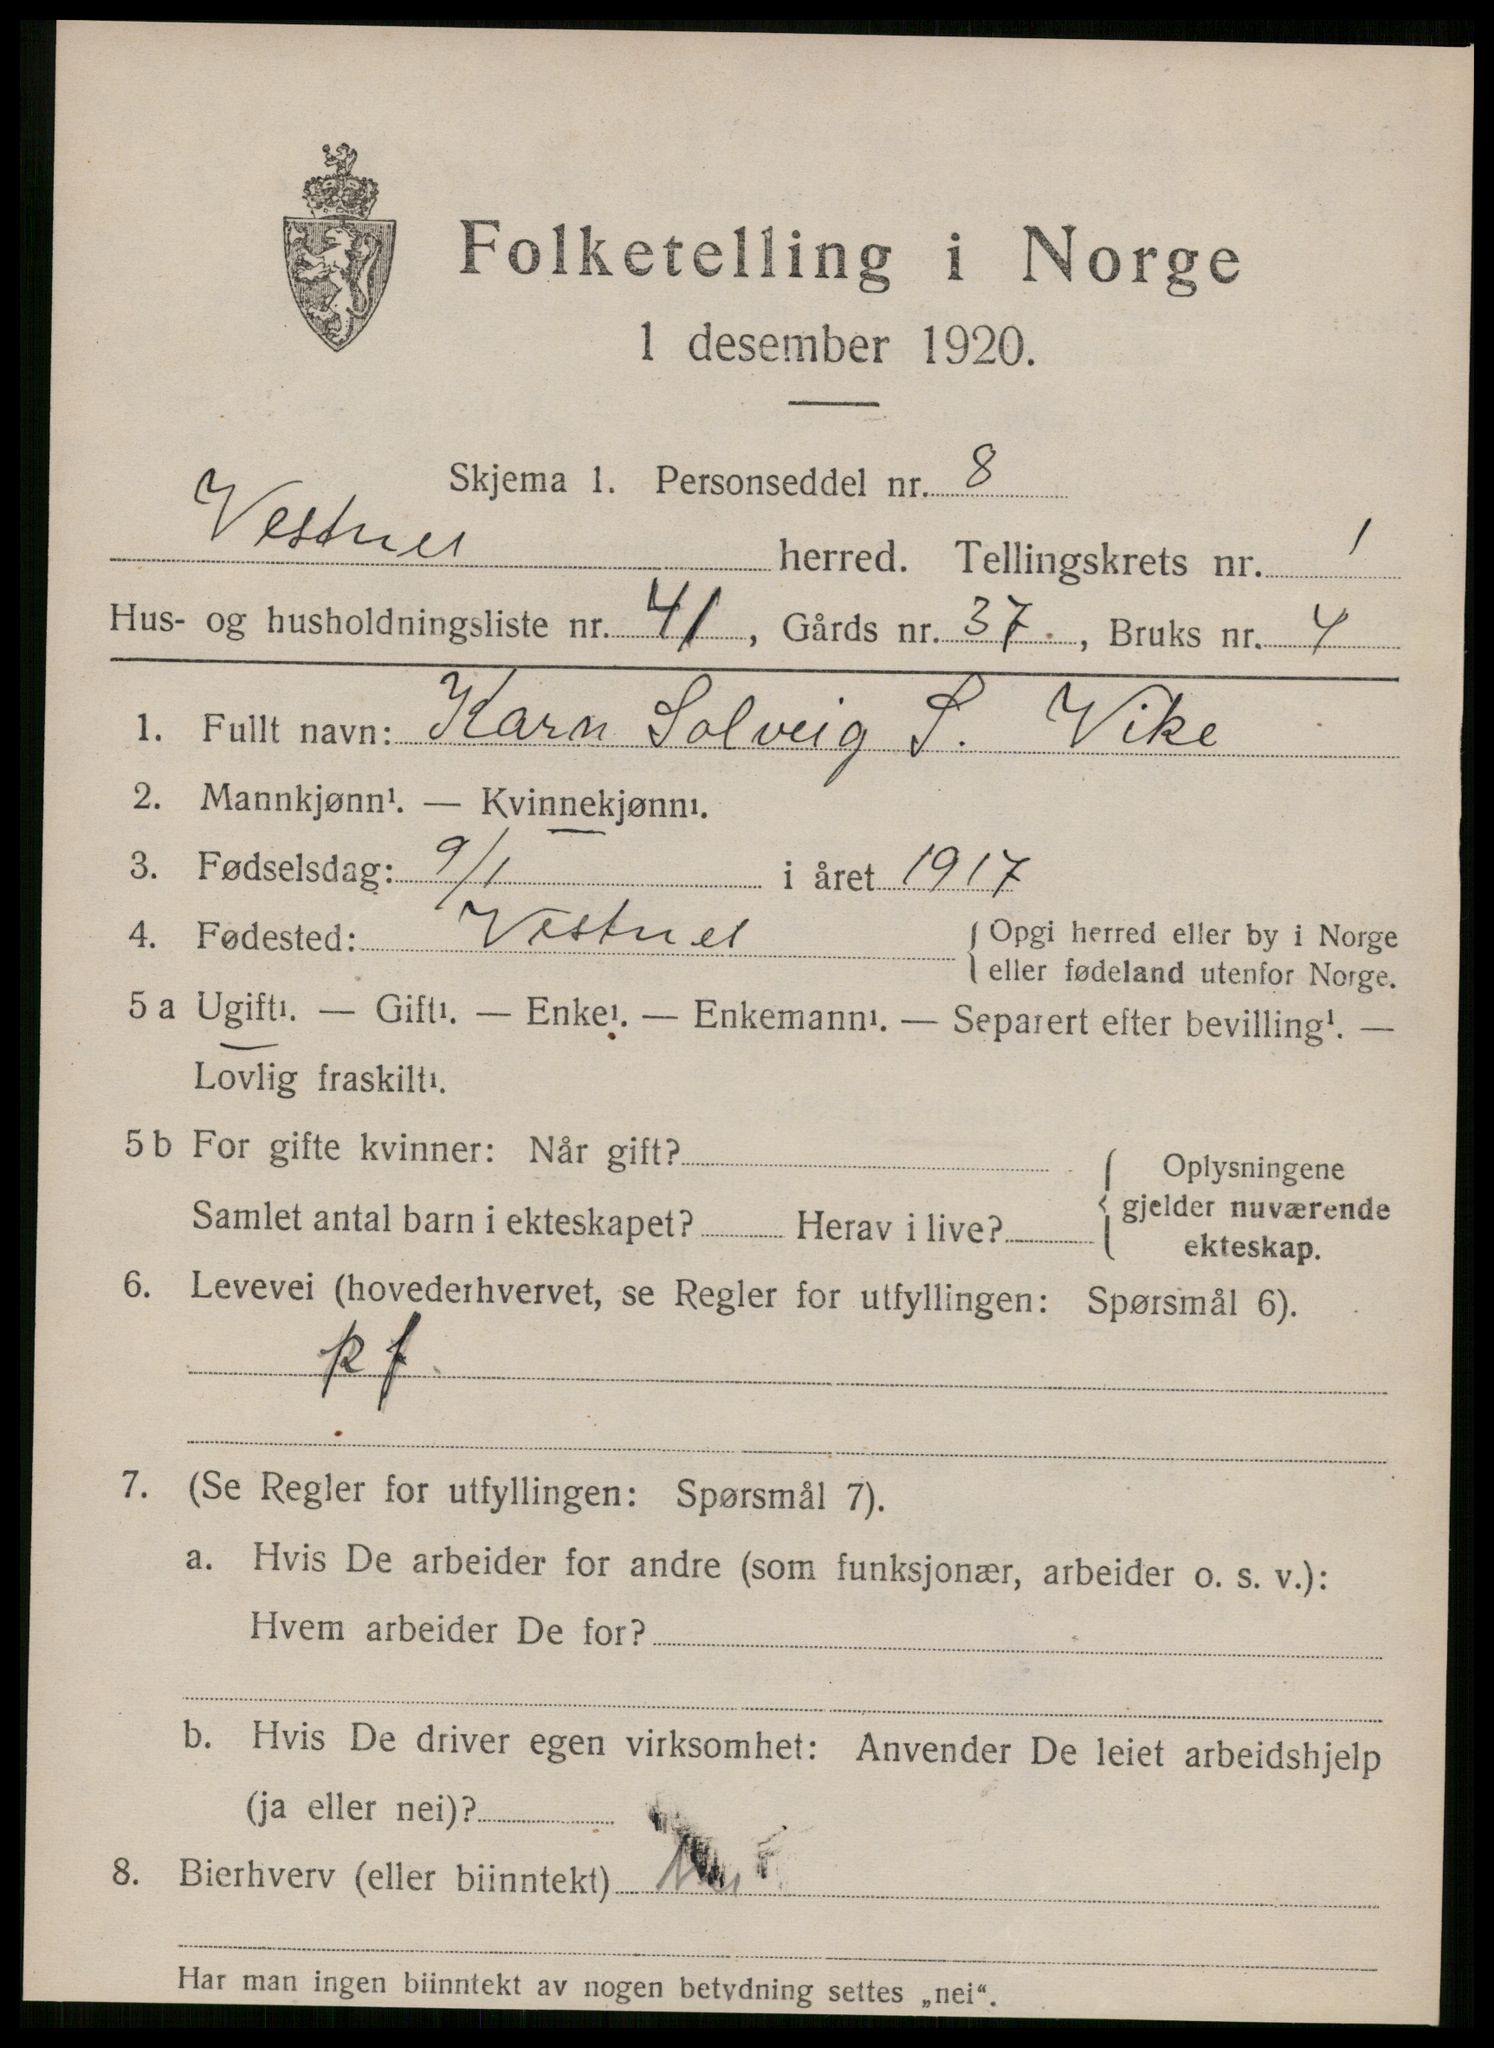 Folketelling i Norge
1 desember 1920.
Skjema 1. Personseddel nr. 8
Vestnes herred. Tellingskrets nr. 1
Hus- og husholdningsliste nr. 41, Gårds nr. 37, Bruks nr. 4
1. Fullt navn: Karn Solveig S. Vike
2. Mannkjønn¹. — Kvinnekjønn¹.
3. Fødselsdag: 9/1 i året 1917
4. Fødested: Vestnes { Opgi herred eller by i Norge
eller fødeland utenfor Norge.
5 a Ugift¹. — Gift¹. — Enke¹. — Enkemann¹. — Separert efter bevilling¹. —
Lovlig fraskilt¹.
5 b For gifte kvinner: Når gift? { Oplysningene
gjelder nuværende
ekteskap.
Samlet antal barn i ekteskapet? Herav i live?
6. Levevei (hovederhvervet, se Regler for utfyllingen: Spørsmål 6).
7. (Se Regler for utfyllingen: Spørsmål 7).
a. Hvis De arbeider for andre (som funksjonær, arbeider o. s. v.):
Hvem arbeider De for?
b. Hvis De driver egen virksomhet: Anvender De leiet arbeidshjelp
(ja eller nei)?
8. Bierhverv (eller biinntekt)
Har man ingen biinntekt av nogen betydning settes „nei“.